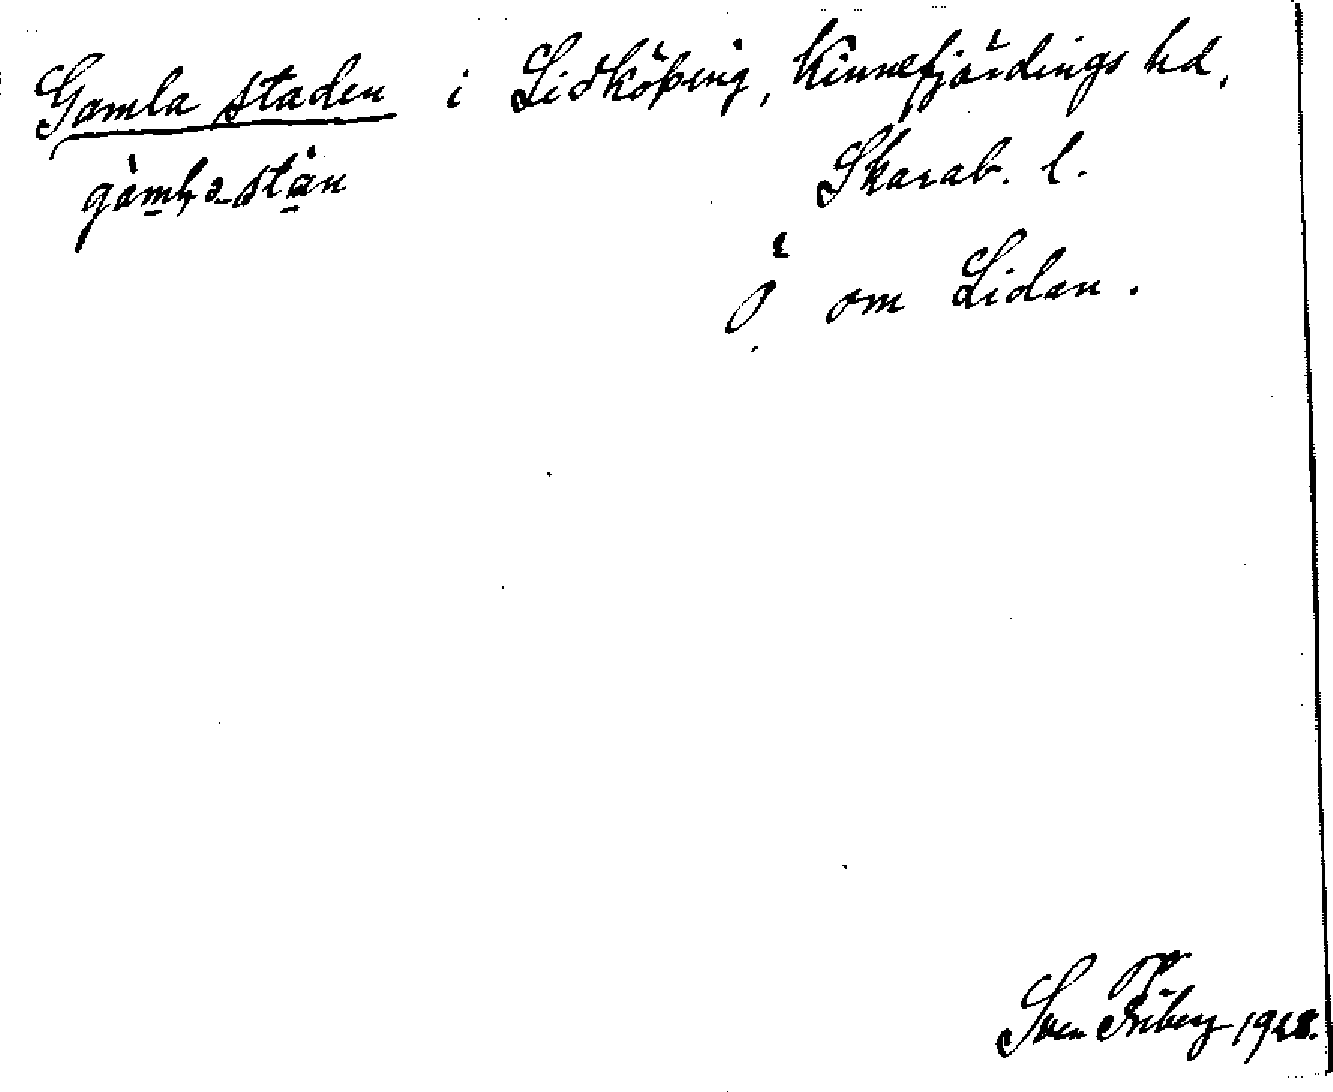 Gamla staden i Lidköping, Kinnefjärdings hd,
gàmḷa stàn
Skarab. l.
Ö om Lidan.
Sven Friberg 1928.